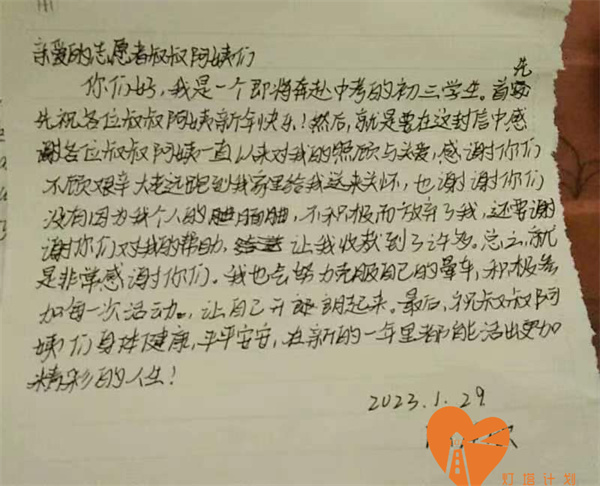 亲爱的志愿者叔叔阿姨们
你们好,我是一个即将奔赴中考的初三学生。首先
先祝各位叔叔阿姨新年快乐!然后,就是要在这封信中感
谢各位叔叔阿姨一直以来对我的照顾与关爱,感谢你们
不顾艰辛大老远跑到我家里给我送来关怀,也谢谢你们
没有因为我个人的腼腆,不积极而放弃了我,还要谢
谢你们对我的帮助,让我收获到了许多。总之,就
是非常感谢你们。我也会努力克服自己的晕车,积极参
加每一次活动。让自己开朗起来。最后,祝叔叔阿
姨们身体健康,平平安安,在新的一年里都能活出更加
精彩的人生!
2023.1.29
灯塔计划